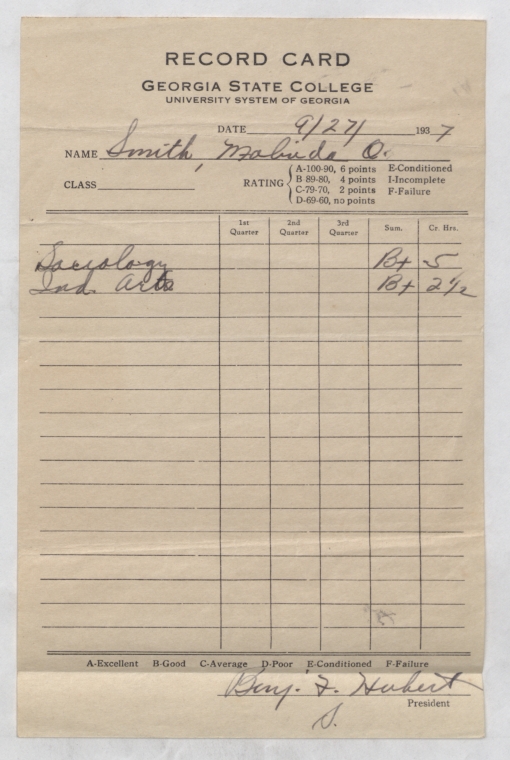 RECORD CARD
GEORGIA STATE COLLEGE
UNIVERSITY SYSTEM OF GEORGIA
DATE 9/27/ 1937
NAME Smith, O.
CLASS RATING A-100-90, 6 points E-Conditioned
B 89-80, 4 points I-Incomplete
C-79-70, 2 points F-Failure
D-69-60, no points
1st Quarter 2nd Quarter 3rd Quarter Sum. Cr. Hrs.
Sociology B+ 5
Ind. Arts B+ 2 1/2
A-Excellent B-Good C-Average D-Poor E-Conditioned F-Failure
Benj. F. Hubert
President
S.